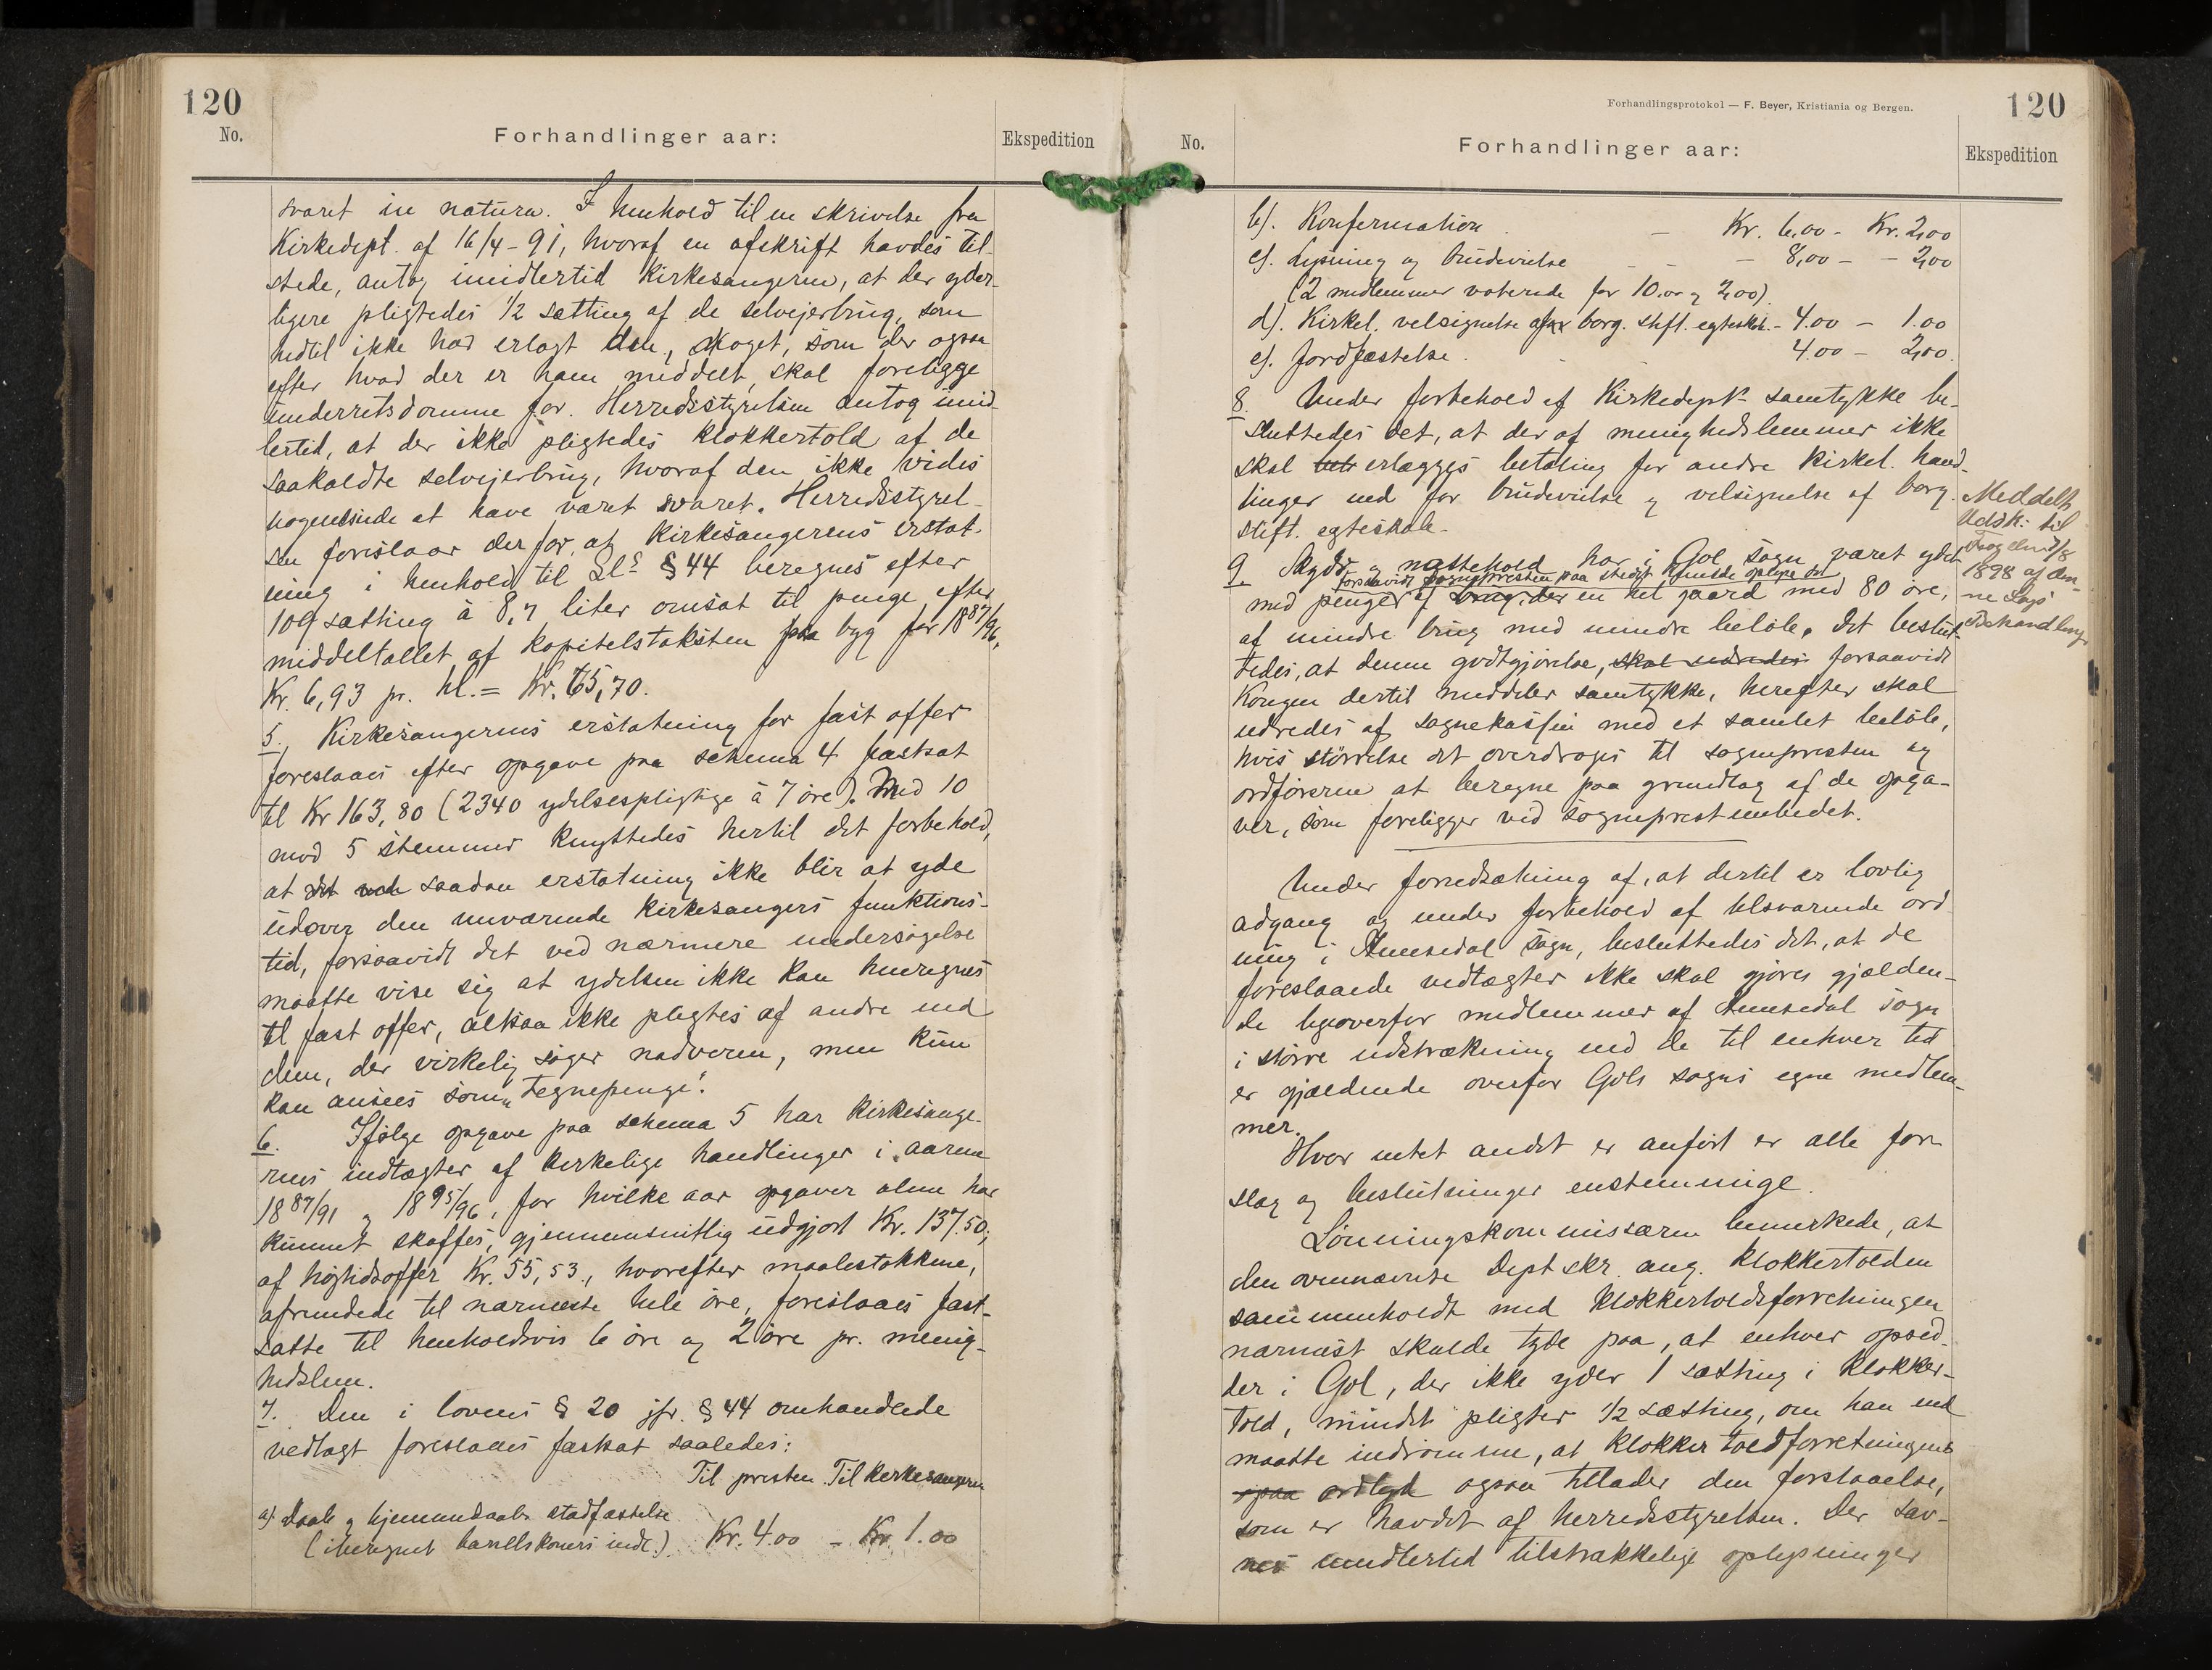 120
No.
Forhandlinger aar:
Ekspedition
svaret in natura. I henhold til en skrivelse fra
Kirkedept. af 16/4-91, hvoraf en afskrift havdes til-
stede, antog imidlertid kirkesangeren, at der yder-
ligere pligtedes 1/2 sætting af de selveierbrug, som
hidtil ikke har erlagt den, skoget, som der ogsaa
efter hvad der er ham meddelt, skal foreligge
underretsdomme for. Herredsstyrelsen antog imid-
lertid, at der ikke pligtedes klokkertold af de
saakaldte selvejerbrug, hvoraf den ikke vides
nogensinde at have været svaret. Herredsstyrel-
sen foreslaar derfor, at kirkesangerens erstat-
ning i henhold til Ll's § 44 beregnes efter
109 sætting à 8,7 liter omsat til penge efter
middeltallet af kapitelstaksten paa byg for 1887/96,
Kr. 6,93 pr. hl. = Kr. 65,70.
5. Kirkesangerens erstatning for fast offer
foreslaaes efter opgave paa schema 4 fastsat
til Kr 163,80 (2340 ydelsespligtige à 7 öre). Med 10
mod 5 stemmer knyttedes hertil det forbehold,
at saadan erstatning ikke blir at yde
udover den nuværende kirkesangers funktions-
tid, forsaavidt det ved nærmere undersögelse
maatte vise sig at ydelsen ikke kan henregnes
til fast offer, altsaa ikke pligtes af andre end
dem, der virkelig söger nadveren, men kun
kan ansees som „tegnepenge".
6. Ifölge opgave paa schema 5 har kirkesange-
rens indtægter af kirkelige handlinger i aarene
1887/91 og 1895/96, for hvilke aar opgaver alene har
kunnet skaffes, gjennemsnitlig udgjort Kr. 137.50;
af höitidsoffer Kr. 55,53., hvorefter maalestokkene,
afrundede til nærmeste hele öre, foreslaaes fast-
satte til henholdsvis 6 öre og 2 öre pr. menig-
hedslem.
7. Den i lovens § 20 jfr. § 44 omhandlede
vedtagt foreslaaes fastsat saaledes:
Til presten Til kirkesangeren
a). Daab og hjemmedaabs stadfæstelse
(iberegnet barselkoners indl.) Kr. 4.00 - Kr 1.00
Forhandlingsprotokol — F. Beyer, Kristiania og Bergen.
120
No.
Forhandlinger aar:
Ekspedition
b). Konfirmation - Kr. 6,00 - Kr. 2,00
c). Lysning og brudevielse - - - 8,00 - - 2,00
(2 medlemmer voterede for 10.00 og 2,00).
d). Kirkel. velsignelse af borg. stift. egteskab - 4.00 - 1.00
e). Jordfæstelse. 4.00 - 2,00.
8. Under forbehold af Kirkedept's samtykke be-
sluttedes det, at der af menighedslemmer ikke
skal erlægges betaling for andre kirkel. hand-
linger end for brudevielse og velsignelse af borg.
stift. egteskab.
9. Skyds og nattehold har i Gol sogn været ydet
forsaavidt sognepresten paa stedet kunde oplyse det
med penger af en hel gaard med 80 öre,
af mindre brug med mindre belöb. Det beslut-
tedes, at denne godtgjörelse, skal udredes forsaavidt
Kongen dertil meddeler samtykke, herefter skal
udredes af sognekassen med et samlet belöb,
hvis störrelse det overdroges til sognepresten og
ordföreren at beregne paa grundlag af de opga-
ver, som foreligger ved sogneprestembedet.
Meddelt
Udsk. til
Fogden 11/8
1898 af den-
ne Sags
Behandling.
Under forudsætning af, at dertil er lovlig
adgang og under forbehold af tilsvarende ord-
ning i Hemsedal sogn, besluttedes det, at de
foreslaaede vedtægter ikke skal gjöres gjælden-
de ligeoverfor medlemmer af Hemsedal sogn
i större udstrækning end de til enhver tid
er gjældende overfor Gols sogns egne medlem-
mer.
Hvor intet andet er anfört er alle for-
slag og beslutninger enstemmige.
Lönningskommissæren bemerkede, at
den ovennævnte Dept skr. ang. klokkertolden
sammenholdt med klokkertoldsforretningen
nærmest skulde tyde paa, at enhver opsid-
der i Gol, der ikke yder 1 sætting i klokker-
told, mindst pligter 1/2 sætting, om han end
maatte indrömme, at klokkertoldforretningens
opaa ordlyd ogsaa tillader den forstaaelse,
som er hævdet af herredsstyrelsen. Der sav-
nes imidlertid tilstrækkelige oplysninger